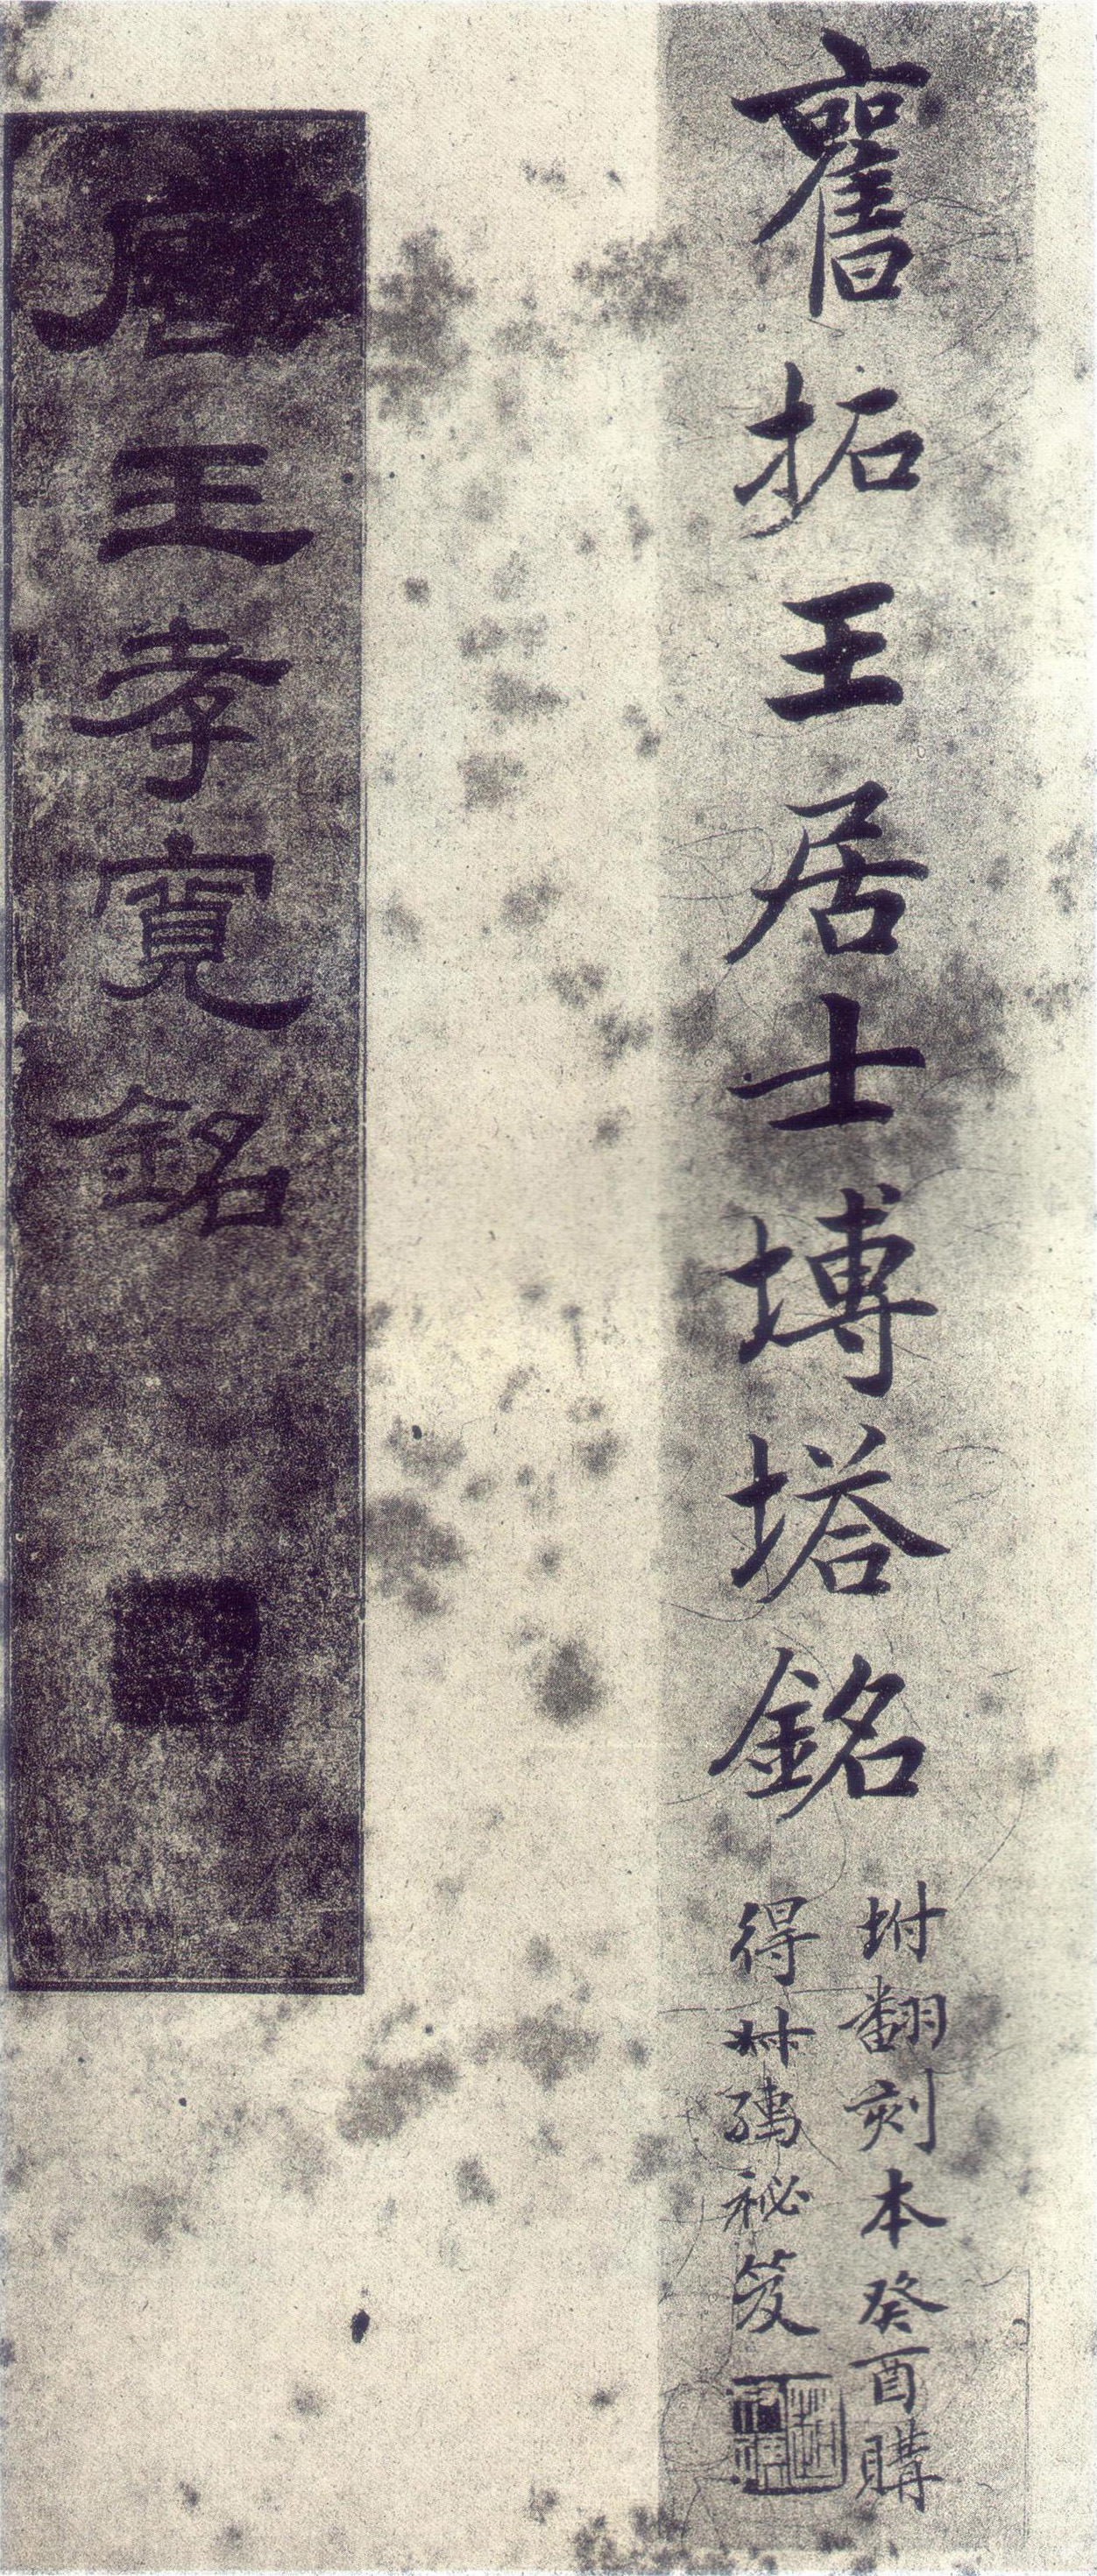 舊拓王居士塼塔銘
坿翻刻本癸酉購
得祕笈
唐王孝寬銘